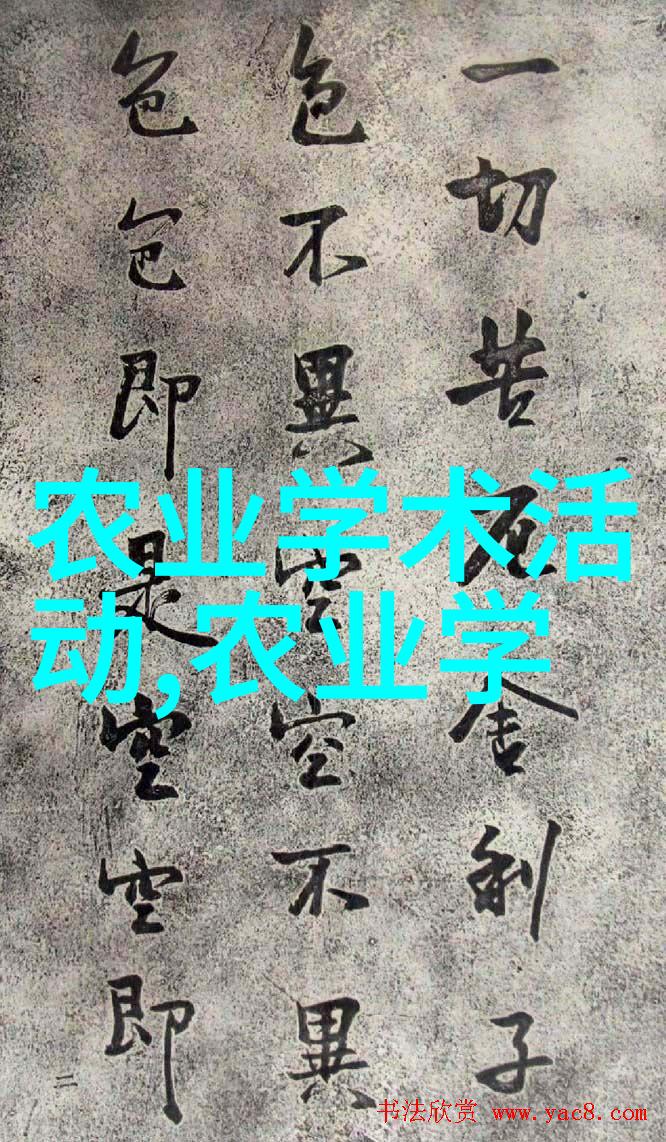 一切苦厄舍利子
色不異空空不異
色色即是空空即
二
农业学术活
动,农业学
书法欣赏 www.yac8.com